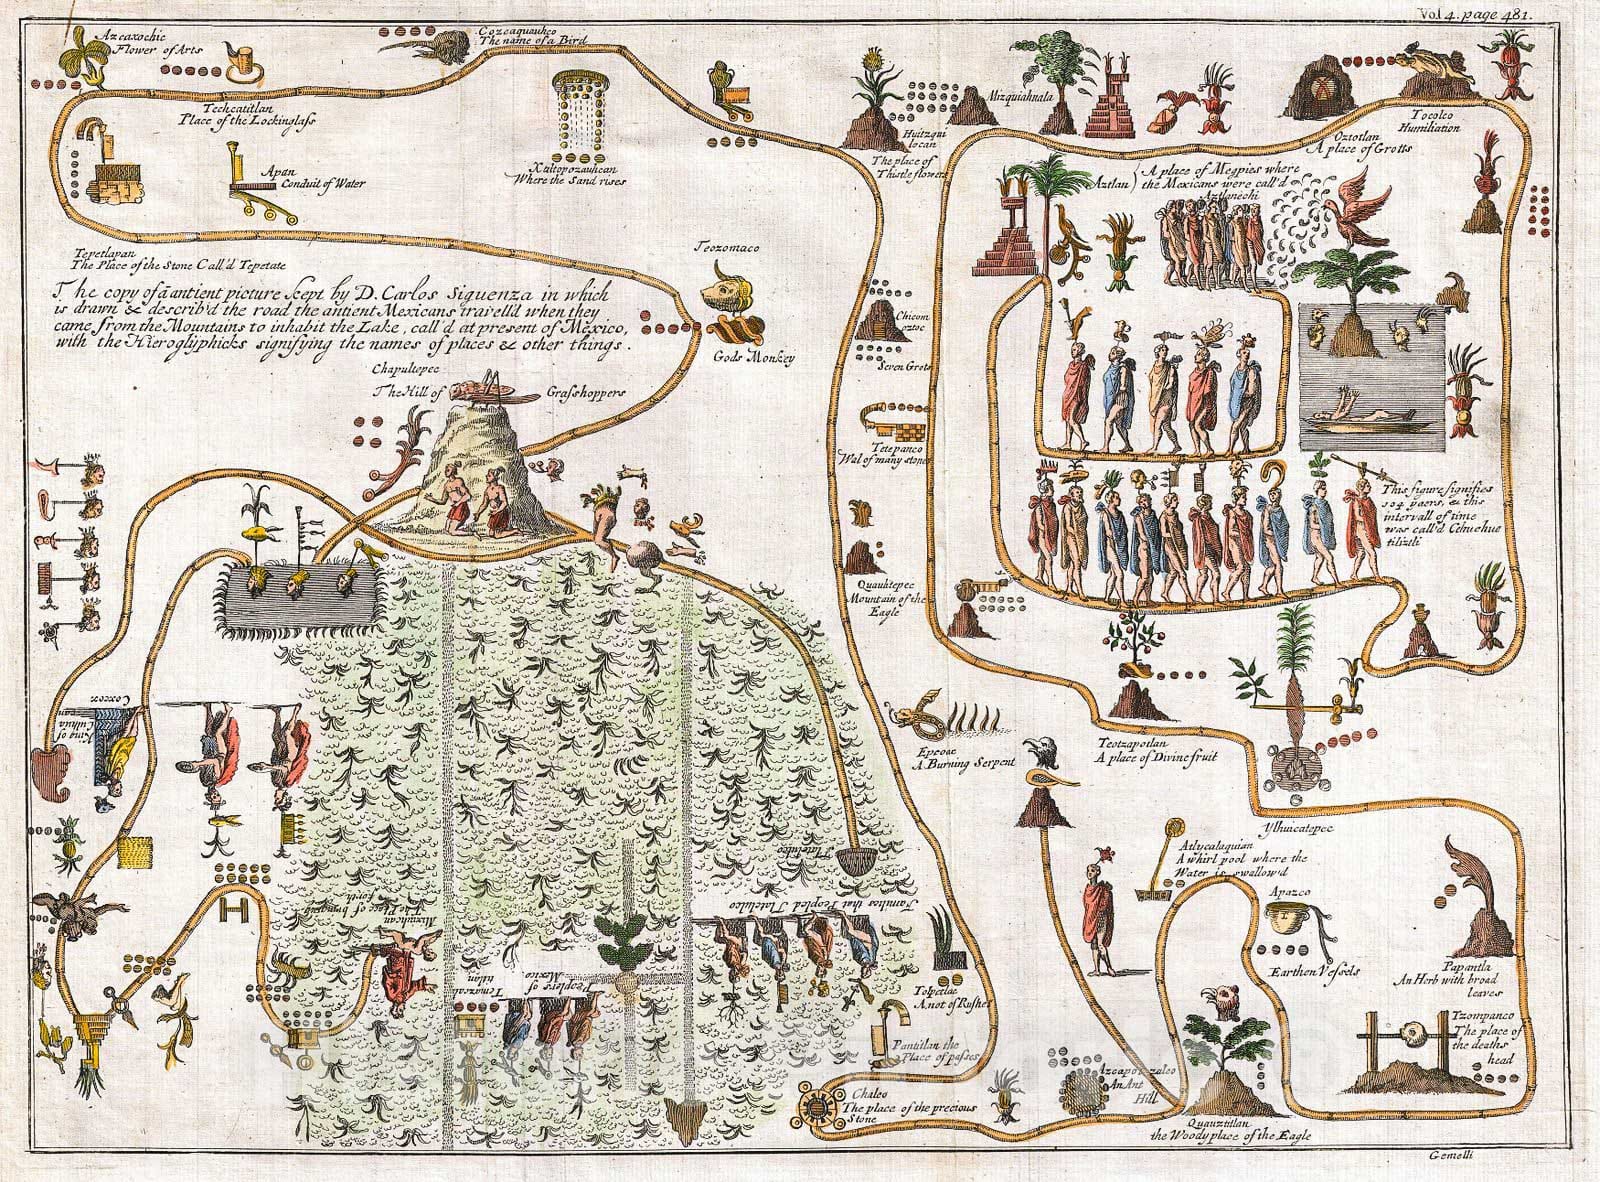 Vol 4. page 481.
Azcaxochic
Flower of Arts
Cozcaquauhco
The name of a Bird
Techcatitlan
Place of the Lockinglass
Apan
Conduit of Water
Xaltopozauhcan
Where the Sand rises
Huitzqui
locan
The place of
Thistle flower
Mizquiahnala
Oztotlan
A place of Grotts
Tocolco
Humiliation
Aztlan
A place of Megpies where
the Mexicans were call'd
Aztlanechi
Tepetlapan
The Place of the Stone Call'd Tepetate
Teozomaco
Gods Monkey
The copy of ā antient picture kept by D. Carlos Siguenza in which
is drawn & describ'd the road the antient Mexicans travell'd when they
came from the Mountains to inhabit the Lake, call'd at present of Mexico,
with the Hieroglyphicks signifying the names of places & other things.
Chapultepec
The Hill of Grasshoppers
Chicom
oztoc
Seven Grots
Tetepanco
Wal of many stone
Quauhtepec
Mountain of the
Eagle
This figure signifies
104 years, & this
intervall of time
was call'd Cehuehue
tiliztli
Coxcox
King of
Culhua
can
Epcoac
A Burning Serpent
Teotzapotlan
A place of Divine fruit
Ylhuicatepec
Atlycalaquian
A whirl pool where the
Water is swallow'd
Apazco
Earthen Vessels
Papantla
An Herb with broad
leaves
Tzompanco
The place of
the deaths
head
Tlatelulco
Families that Peopled Tlatelulco
Mixiuhcan
The Place of bringing
forth
Temazcal
titlan
Peoplers of
Mexico
Tolpetlac
A not of Rushes
Pantitlan the
Place of passes
Chalco
The place of the precious
Stone
Azcapotzalco
An Ant
Hill
Quauztitlan
the Woody place of the Eagle
Gemelli